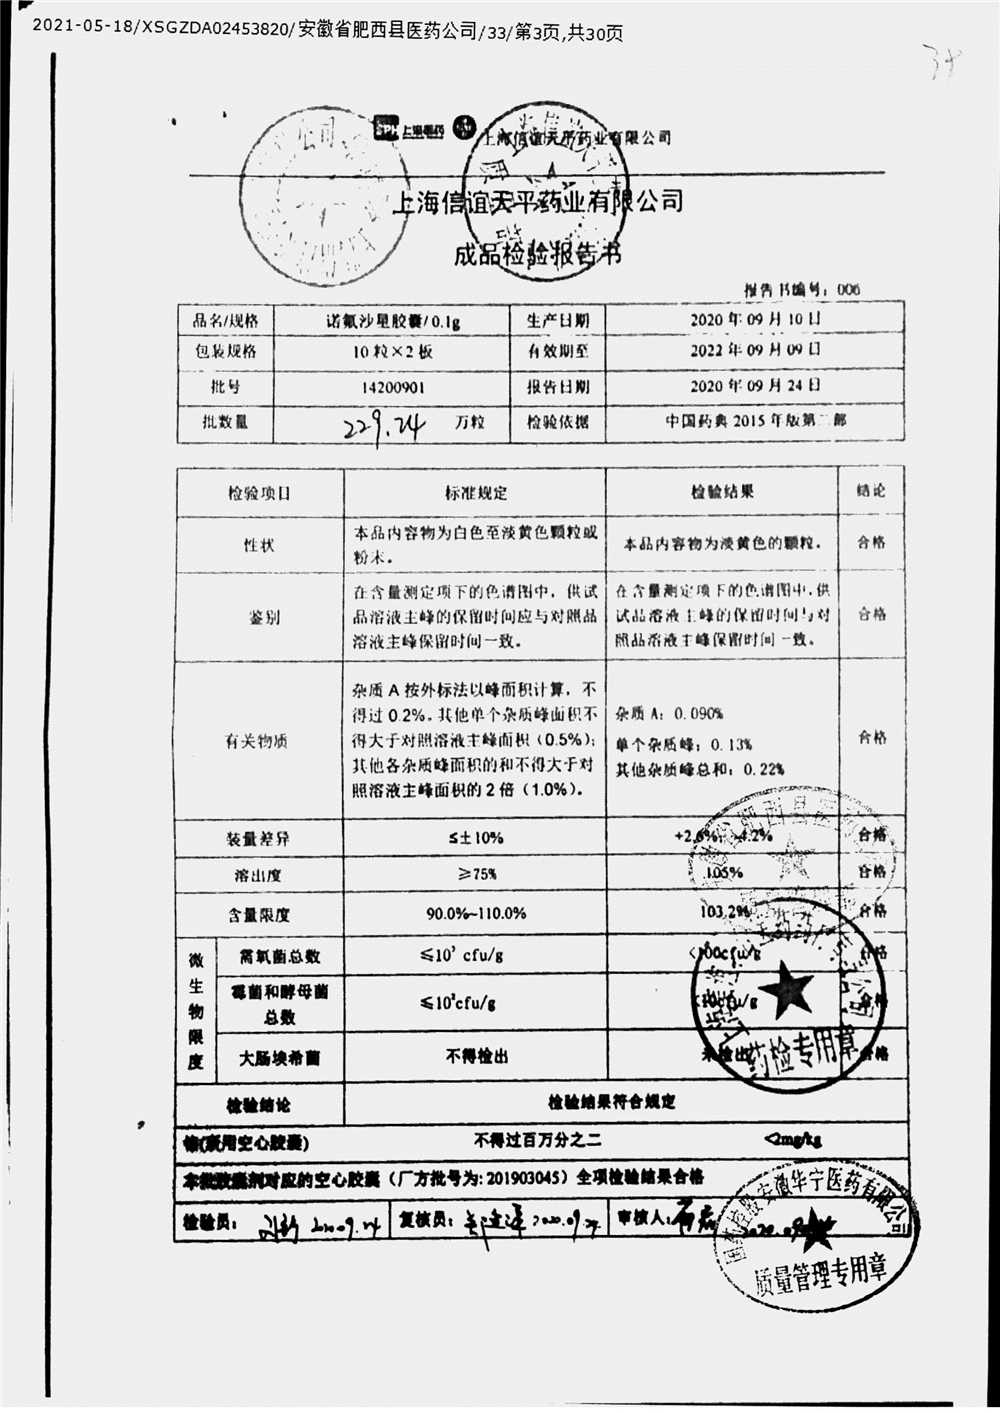 2021-05-18/XSGZDA02453820/安徽省肥西县医药公司/33/第3页,共30页
上海医药 上海信谊天平药业有限公司
上海信谊天平药业有限公司
成品检验报告书
报告书编号：006
品名/规格 诺氟沙星胶囊/0.1g 生产日期 2020 年 09 月 10 日
包装规格 10 粒×2 板 有效期至 2022 年 09 月 09 日
批号 14200901 报告日期 2020 年 09 月 24 日
批数量 229.24 万粒 检验依据 中国药典 2015 年版第二部
检验项目 标准规定 检验结果 结论
性状 本品内容物为白色至淡黄色颗粒或粉末。 本品内容物为淡黄色的颗粒。 合格
鉴别 在含量测定项下的色谱图中，供试品溶液主峰的保留时间应与对照品溶液主峰保留时间一致。 在含量测定项下的色谱图中，供试品溶液主峰的保留时间与对照品溶液主峰保留时间一致。 合格
有关物质 杂质 A 按外标法以峰面积计算，不得过 0.2%。其他单个杂质峰面积不得大于对照溶液主峰面积（0.5%）；其他各杂质峰面积的和不得大于对照溶液主峰面积的 2 倍（1.0%）。 杂质 A：0.090%
单个杂质峰：0.13%
其他杂质峰总和：0.22% 合格
装量差异 ≤±10% 合格
溶出度 ≥75% 105% 合格
含量限度 90.0%~110.0% 103.2% 合格
微生物限度
需氧菌总数 ≤10³ cfu/g <100cfu/g 合格
霉菌和酵母菌总数 ≤10²cfu/g <10cfu/g 合格
大肠埃希菌 不得检出 未检出 合格
检验结论 检验结果符合规定
铬(药用空心胶囊) 不得过百万分之二 <2mg/kg
本批胶囊剂对应的空心胶囊（厂方批号为：201903045）全项检验结果合格
检验员： 2020.09.24 复核员： 2020.09.24 审核人：
药检专用章
国药控股安徽华宁医药有限公司
质量管理专用章